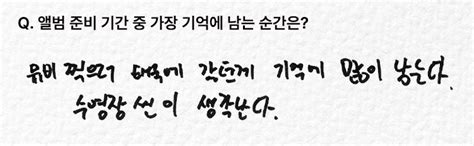 Q. 앨범 준비 기간 중 가장 기억에 남는 순간은?
뮤비 찍으러 태국에 갔던게 기억에 많이 남는다.
수영장 씬이 생각난다.